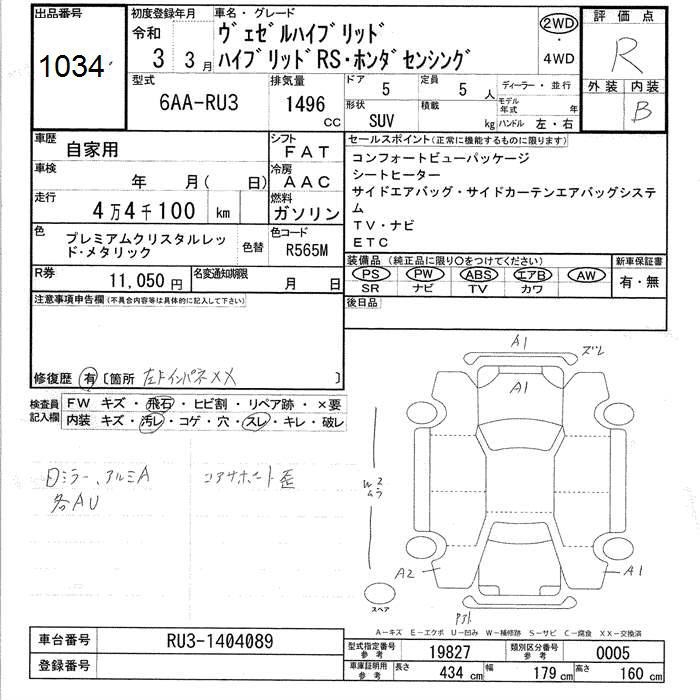 出品番号
1034
初度登録年月
令和
3 3月
車名・グレード
ヴェゼルハイブリッド
ハイブリッドRS・ホンダセンシング
2WD
・
4WD
評価点
R
外装 内装
B
型式
6AA-RU3
排気量
1496
CC
ドア
5
定員
5 人
ディーラー・並行
形状
SUV
積載
kg
モデル年式
年
ハンドル 左・右
車歴
自家用
シフト
FAT
車検
年 月( 日)
冷房
AAC
走行
4万4千100 km
燃料
ガソリン
色
プレミアムクリスタルレッド・メタリック
色替
色コード
R565M
R券
11,050円
名変通知期限
月 日
セールスポイント(正常に機能するものに限ります)
コンフォートビューパッケージ
シートヒーター
サイドエアバッグ・サイドカーテンエアバッグシステ
ム
TV・ナビ
ETC
装備品 (純正品に限り○をつけてください)
PS PW ABS エアB AW
SR ナビ TV カワ
新車保証書
有・無
後日品
注意事項申告欄(不具合内容等は具体的に記入して下さい)
修復歴 有 [箇所 左ドインパネXX ]
検査員
記入欄
FW キズ・飛石・ヒビ割・リペア跡・×要
内装 キズ・汚レ・コゲ・穴・スレ・キレ・破レ
ミラー、アルミA
各AU
コアサポート歪
A1
ズレ
A1
A2
A1
スペア
A-キズ E-エクボ U-凹み W-補修跡 S-サビ C-腐食 XX-交換済
車台番号
RU3-1404089
登録番号
型式指定番号
参考
19827
類別区分番号
参考
0005
車庫証明用
参考
長さ
434 cm
幅
179 cm
高さ
160 cm